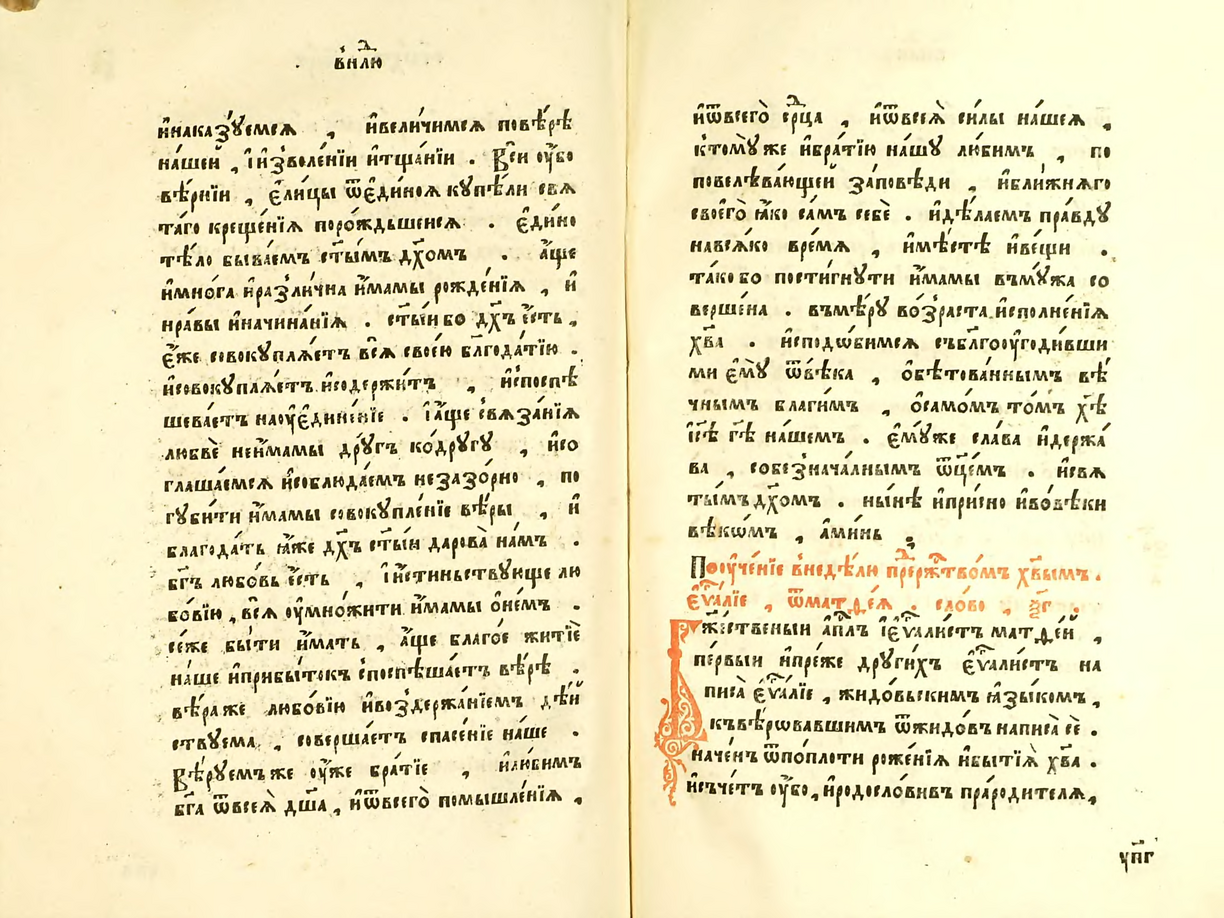 внⷣлю
и҆наказꙋ́емсѧ , и҆вели́чимсѧ повѣ́рѣ
на́шей , і҆и҆зволе́нїи и҆тща́нїи . Вси ѹ҆́бо
вѣ́рнїи , є҆ли́цы ѿє҆ди́ноѧ кꙋпѣ́ли свѧ
та́го креще́нїѧ поро́ждьшеисѧ . є҆ди́но
тѣ́ло быва́емъ ст҃ы́мъ дх҃омъ . а҆́ще
и҆мно́га и҆разли́чна и҆́мамы рожде́нїѧ , и҆
нра́вы и҆начина́нїѧ . ст҃ы́и бо дх҃ъ є҆́сть ,
є҆́же совокꙋплѧ́етъ всѧ̀ свое́ю бл҃года́тїю .
и҆совокꙋплѧ́етъ и҆содержи́тъ , и҆споспѣ
шева́етъ наѹ҆єдине́нїе . і҆а҆́ще свѧза́нїѧ
любвѐ неи҆́мамы дрꙋ́гъ ко́дрꙋгꙋ , и҆со
глаша́емсѧ и҆соблюда́емъ незазо́рно , по
гꙋби́ти и҆́мамы совокꙋпле́нїе вѣ́ры , и҆
благода́ть ꙗ҆́же дх҃ъ ст҃ы́и дарова̀ на́мъ .
бг҃ъ любо́вь є҆́сть , і҆и҆́стиньствꙋюще лю
бо́вїю , всѧ̀ ѹ҆мно́жити и҆́мамы о҆не́мъ .
се́же бы́ти и҆́мать , а҆́ще благо́е житїѐ
на́ше и҆прибы́токъ споспѣша́етъ вѣ́рѣ .
вѣ́ра же любо́вїю и҆воздержа́нїемъ дѣ́й
ствꙋема , соверша́етъ спасе́нїе на́ше .
Вѣ́рꙋемъ же ѹ҆́же бра́тїе , и҆лю́бимъ
бг҃а ѿвсеѧ̀ дш҃а , и҆ѿвсего̀ помышле́нїѧ ,
и҆ѿвсего̀ срⷣца , и҆ѿвсеѧ̀ си́лы на́шеѧ ,
ктомꙋ̀ же и҆бра́тїю на́шꙋ лю́бимъ , по
повелѣва́ющей за́повѣди , и҆бли́жнѧго
своего̀ ꙗ҆́ко са́мъ себѐ . и҆дѣ́лаемъ пра́вдꙋ
навсѧ́ко вре́мѧ , и҆мѣ́стѣ и҆ве́щи .
та́ко бо пости́гнꙋти и҆́мамы въмꙋ́жа со
верше́на . въмѣ́рꙋ во́зраста и҆сполне́нїѧ
хв҃а . и҆сподо́бимсѧ съблгоѹ҆годи́вши
ми є҆мꙋ̀ ѿвѣ́ка , о҆бѣтова́ннымъ вѣ́
чнымъ благи́мъ , о҆само́мъ то́мъ хѣ҃
і҆сѣ҃ гѣ҃ на́шемъ . є҆мꙋ́же сла́ва и҆держа́
ва , собезнача́лнымъ ѿц҃е́мъ . и҆свѧ
ты́мъ дх҃омъ . ны́нѣ и҆при́сно и҆во́вѣки
вѣкѡ́мъ , а҆ми́нь .
Поѹче́нїе внедѣ́лю преⷣржⷭ҇тво́мъ хв҃ымъ .
є҆ѵⷢ҇а́лїе , ѿмат.ѳ.е́ѧ . сло́во , н҃г .
Бж҃е́ственыи а҆пⷭ҇лъ і҆є҆ѵⷢ҇али́стъ матѳе́й ,
пе́рвыи и҆пре́же дрꙋги́хъ є҆ѵⷢ҇али́стъ на
писа̀ є҆ѵⷢ҇а́лїе , жидо́вьскимъ ꙗ҆зы́комъ ,
къвѣ́ровавшимъ ѿжидо́въ написа̀ сѐ .
наче́нъ ѿпопло́ти роже́нїѧ и҆бытїѧ̀ хв҃а .
и҆съче́тъ ѹ҆́бо , и҆родосло́вивъ прароди́телѧ ,
ѵ҃пг